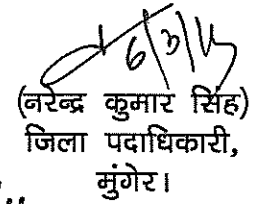 (नरेन्द्र कुमार सिंह)
जिला पदाधिकारी,
मुंगेर।